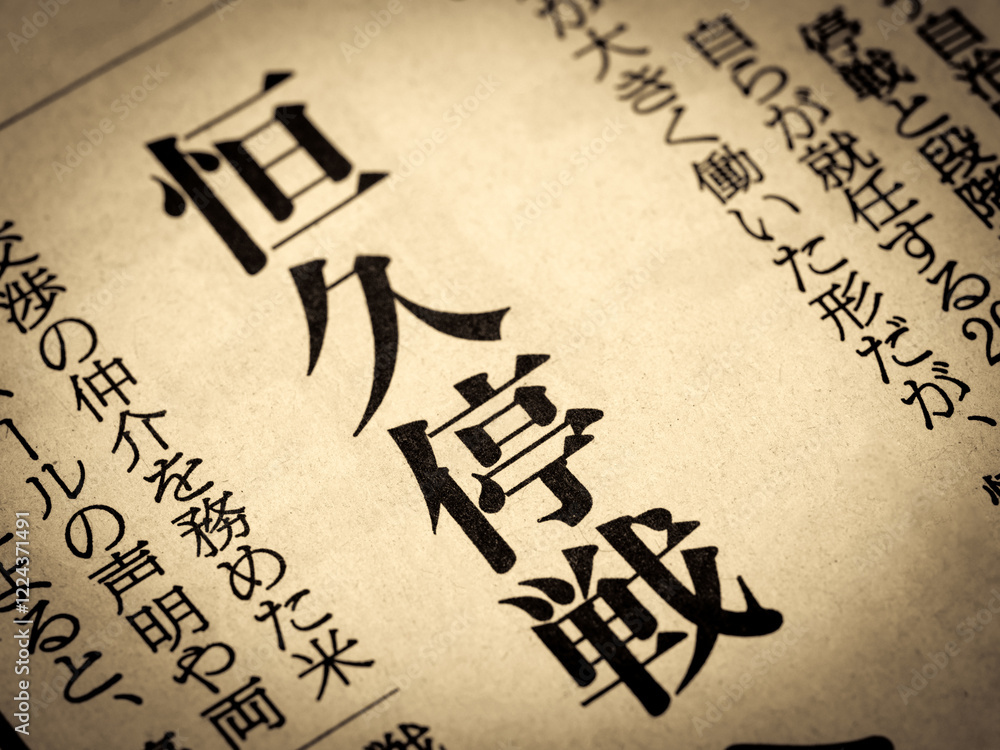 自
停戦と段階
自らが就任する20
が大きく働いた形だが、
恒久停戦
交渉の仲介を務めた米
ールの声明や両
よると、
戦
Adobe Stock | #1224371491
Adobe Stock